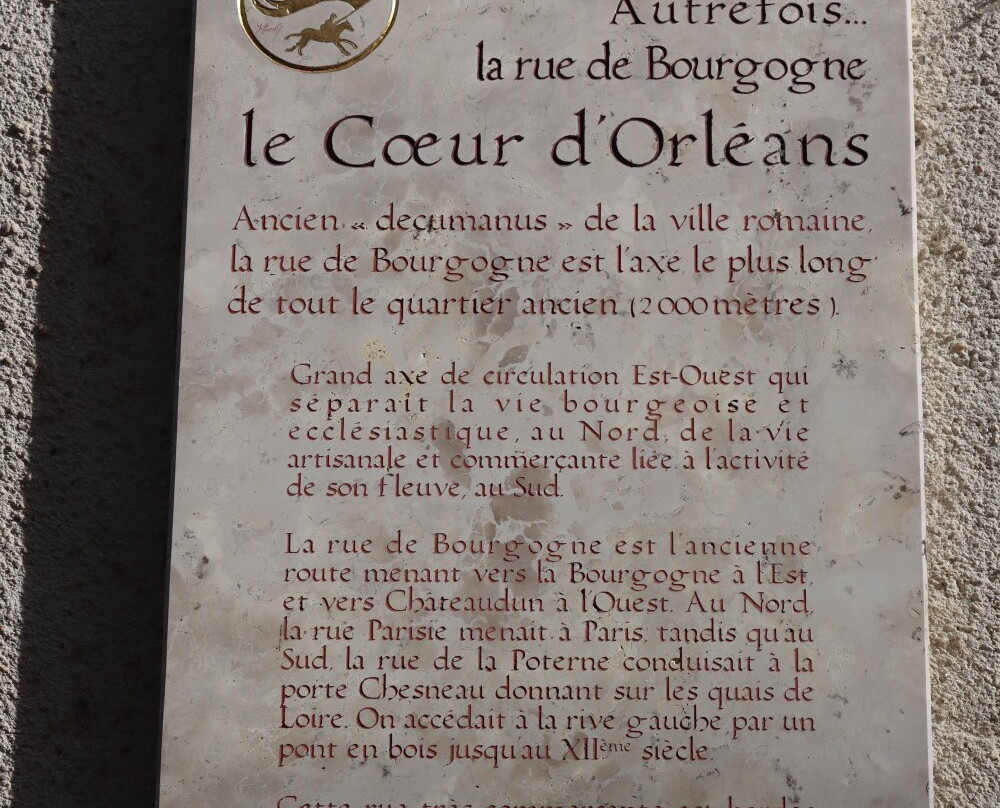 Autrefois...
la rue de Bourgogne
le Cœur d'Orléans
Ancien « decumanus » de la ville romaine,
la rue de Bourgogne est l'axe le plus long
de tout le quartier ancien (2000 mètres).
Grand axe de circulation Est-Ouest qui
séparait la vie bourgeoise et
ecclésiastique, au Nord, de la vie
artisanale et commerçante liée à l'activité
de son fleuve, au Sud.
La rue de Bourgogne est l'ancienne
route menant vers la Bourgogne à l'Est,
et vers Châteaudun à l'Ouest. Au Nord,
la rue Parisie menait à Paris, tandis qu'au
Sud, la rue de la Poterne conduisait à la
porte Chesneau donnant sur les quais de
Loire. On accédait à la rive gauche par un
pont en bois jusqu'au XIIème siècle.
Cette rue très commerçante est bordée